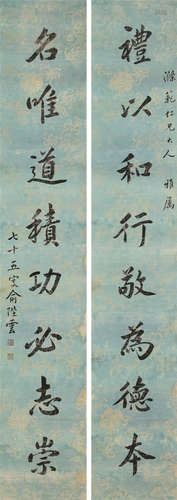 滌範仁兄大人 雅屬
禮以和行敬為德本
名唯道積功必志崇
七十五叟俞陛雲